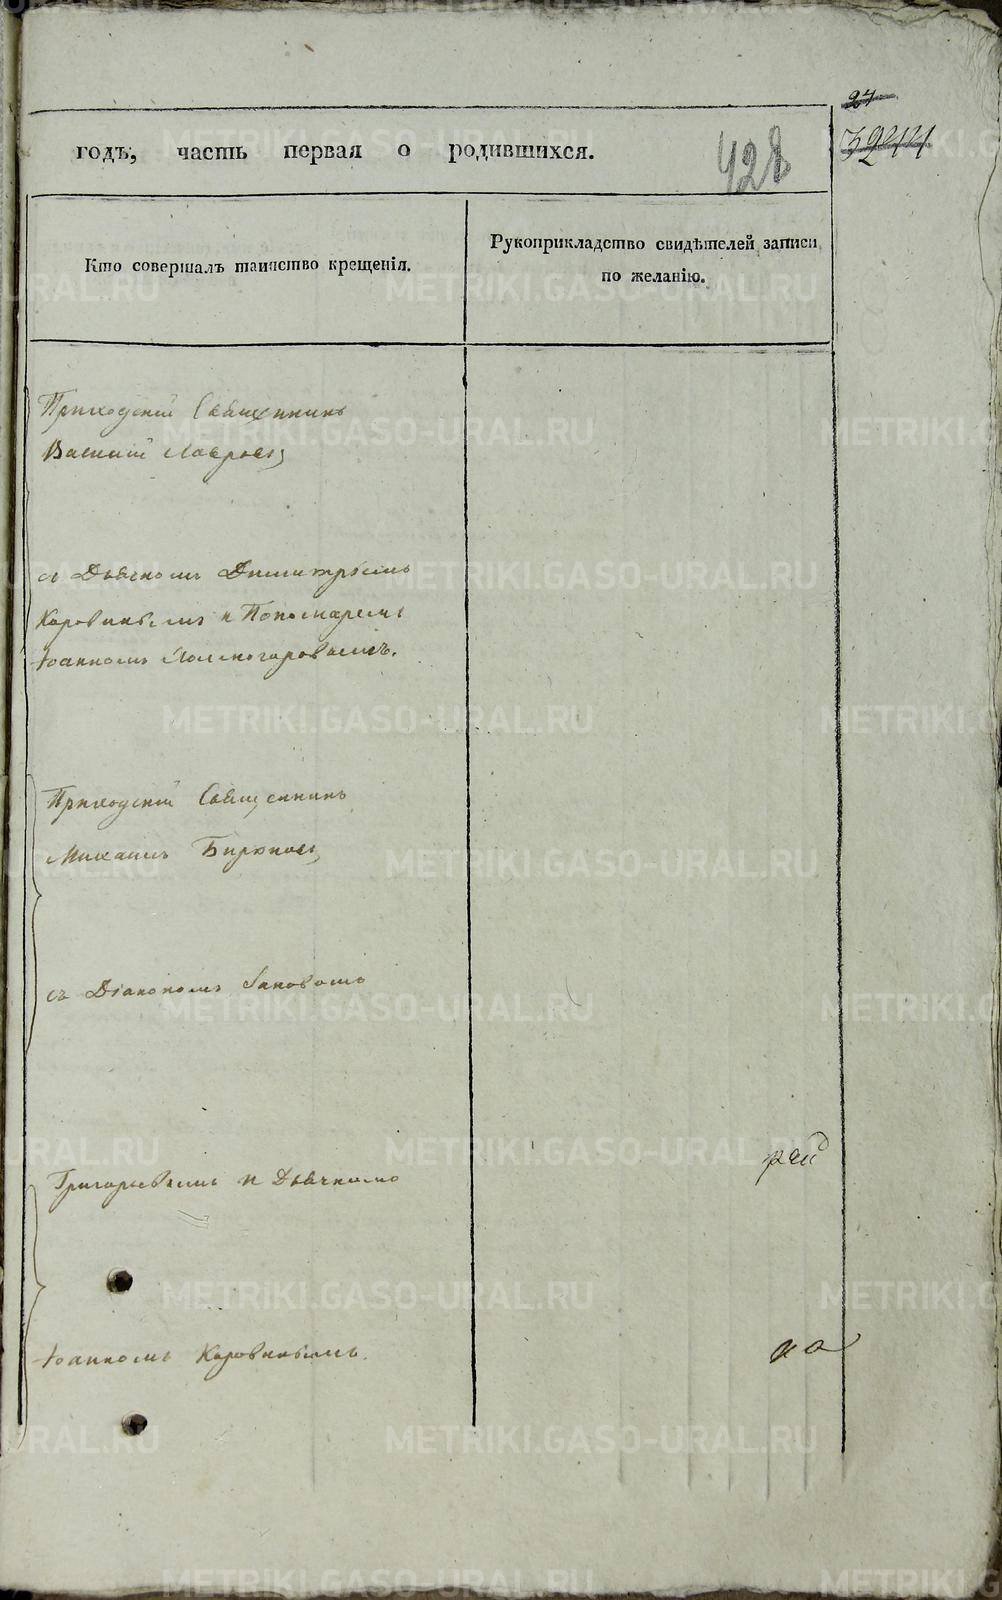 27
428
годъ, часть первая о родившихся.
Кто совершалъ таинство крещенія.
Рукоприкладство свидѣтелей записи
по желанію.
Приходскій Священникъ
Василій Лавровъ
съ Дьячкомъ Димитріемъ
Коровинымъ и Пономаремъ
Іоанномъ Холмогоровымъ.
Приходскій Священникъ
Михаилъ Бирюковъ
съ Діакономъ
Григорьевымъ и Дьячкомъ
Іоанномъ Коровинымъ.
METRIKI.GASO-URAL.RU